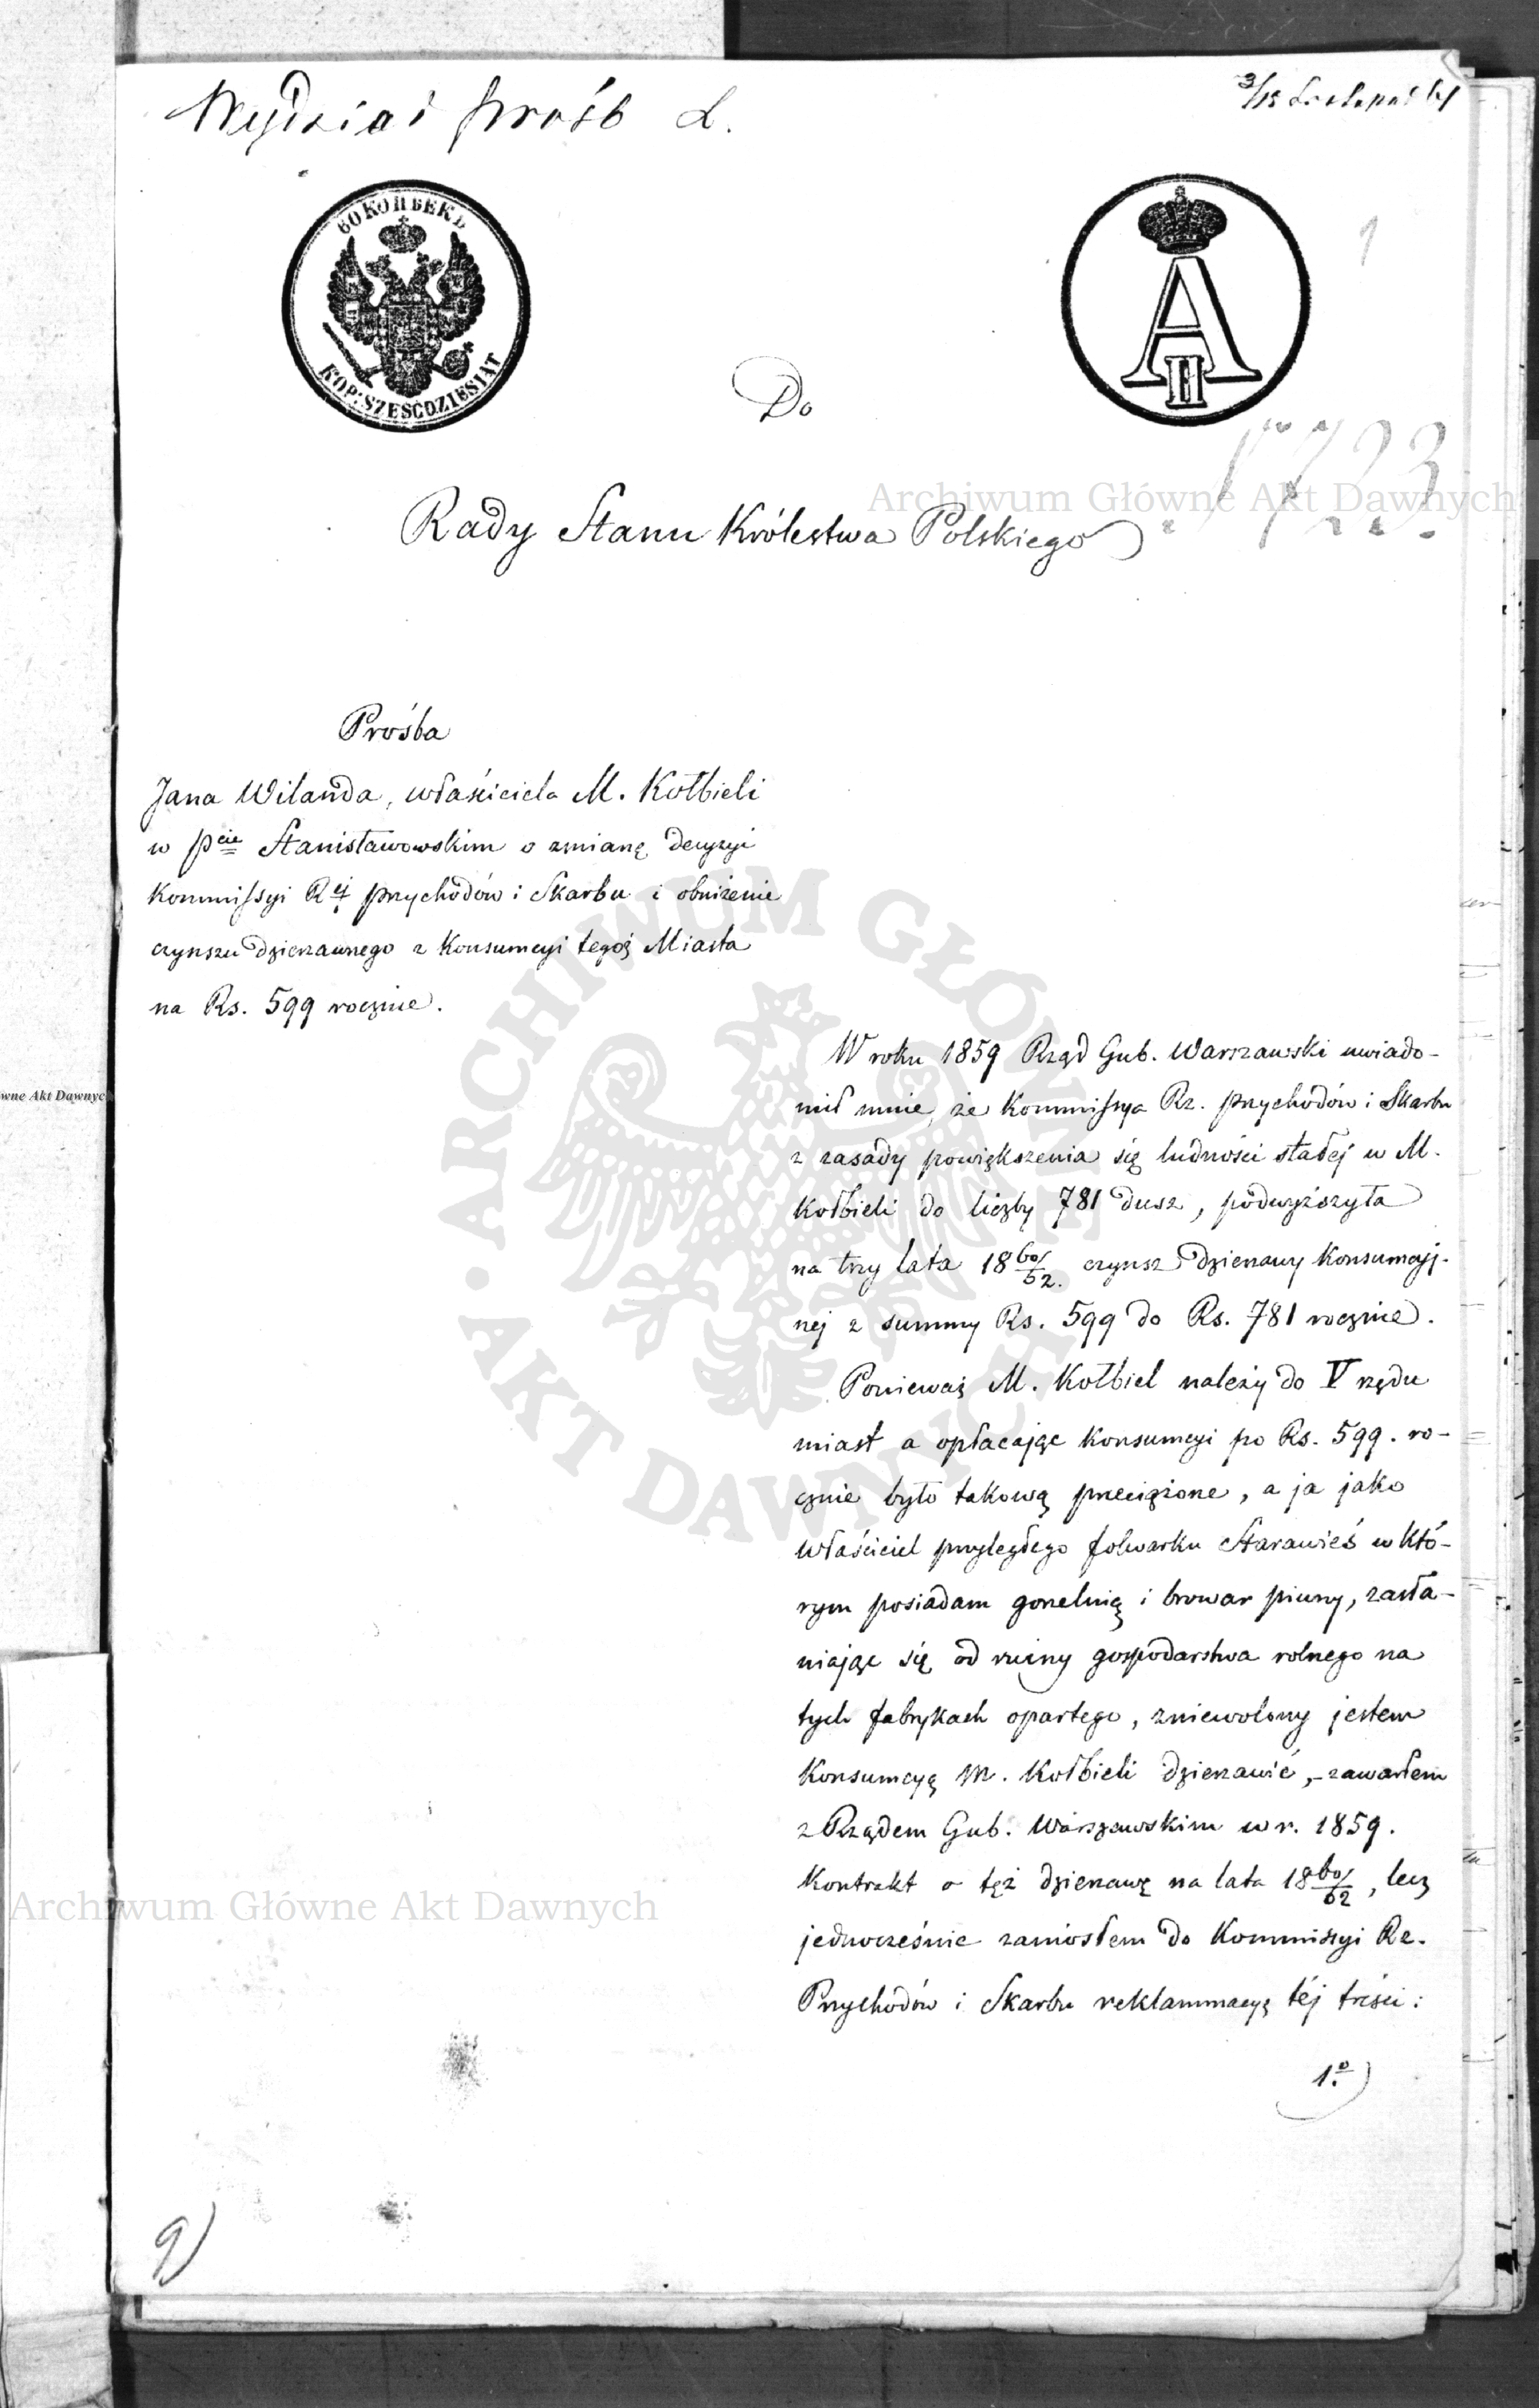 Wydział prośb L.
3/15 Listopad 61
60 КОПѢЕКЪ
KOP: SZEŚĆDZIESIĄT
A II
1
Do
1723.
Rady Stanu Królestwa Polskiego
Prośba
Jana Wilanda, właściciela M. Kołbieli
w Pcie Stanisławowskim o zmianę decyzyi
Kommissyi Rej Przychodów i Skarbu i obniżenie
czynszu dzierżawnego z Konsumcyi tegoż Miasta
na Rs. 599 rocznie.
W roku 1859 Rząd Gub. Warszawski uwiado-
mił mnie, że Kommissya Rz. Przychodów i Skarbu
z zasady powiększenia się ludności stałej w M.
Kołbieli do liczby 781 dusz, podwyższyła
na trzy lata 1860/62. czynsz dzierżawy Konsumcyj-
nej z summy Rs. 599 do Rs. 781 rocznie.
Ponieważ M. Kołbiel należy do V rzędu
miast a opłacając Konsumcyi po Rs. 599. ro-
cznie było takową przeciążone, a ja jako
właściciel przyległego folwarku Starawieś w któ-
rym posiadam gorzelnią i browar piwny, zasła-
niając się od ruiny gospodarstwa rolnego na
tych fabrykach opartego, zniewolony jestem
Konsumcyą M. Kołbieli dzierżawić, - zawarłem
z Rządem Gub. Warszawskim w r. 1859.
Kontrakt o tęż dzierżawę na lata 1860/62, lecz
jednocześnie zaniosłem do Kommissyi Rz.
Przychodów i Skarbu reklammacyą téj tréści:
1o)
9)
Archiwum Główne Akt Dawnych
wne Akt Dawnych
ARCHIWUM GŁÓWNE • AKT DAWNYCH •
Archiwum Główne Akt Dawnych